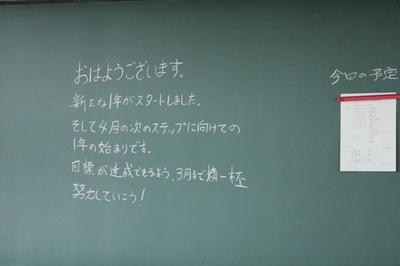 おはようございます。
新たな1年がスタートしました。
そして4月の次のステップに向けての
1年の始まりです。
目標が達成できるよう、3月まで精一杯
努力していこう！
今日の予定